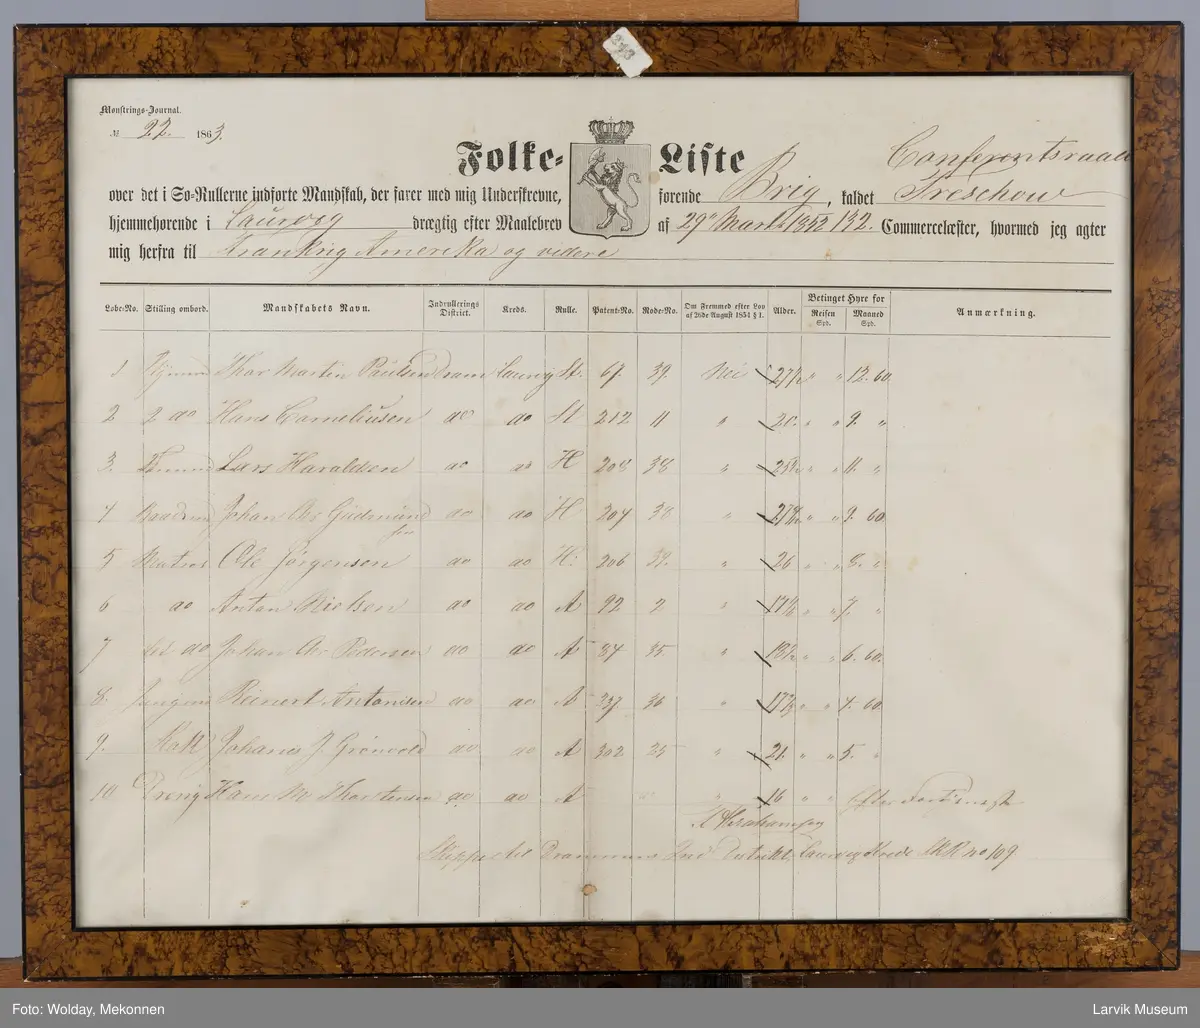 213
Monstrings-Journal.
№ 22. 1863.
Folke-Liste
over det i Sø-Rullerne indførte Mandskab, der farer med mig Underskrevne, førende Brig, kaldet Conferentsraad Treschow
hjemmehørende i Laurvig drægtig efter Maalebrev af 29de Marts 1852 192. Commercelæster, hvormed jeg agter
mig herfra til Frankrig Amerika og videre
Løbe-No. Stilling ombord. Mandskabets Navn. Indrullerings District. Kreds. Rulle. Patent-No. Rode-No. Om Fremmed efter Lov af 26de August 1854 § 1. Alder. Betinget Hyre for Reisen Spd. Maaned Spd. Anmærkning.
1 Thor Martin Paulsen Dram Laurvg St. 67. 39. Nei 27½ " " 12. 60.
2 2 do Hans Corneliusen do do St 212 11 " 20. " " 9. "
3. Lars Haraldsen do do H 208 38 " " " 11. "
4 Johan Chr Gudmundsen do do H 204 38 " " " 9. 60
5 Matros Ole Jørgensen do do H: 206 39. " 26 " " 8. "
6 do Anton Nielsen do do A 92 2 " 17½ " " 7. "
7 do Johan Chr Pedersen do do A 34 35. " " " 6. 60.
8. Reinert Antonsen do do A 237. 36 " " " 4. 60
9. Kok Johanes J. Grönvold do do A 302 25 " 21. " " 5. "
10 Hans M Thorstensen do do A " 16 " " Efter Fortjeneste
A Abrahamsen
Drammens Ind Distrikt, Laurvig Kreds SKR no 109
Foto: Wolday, Mekonnen
Larvik Museum